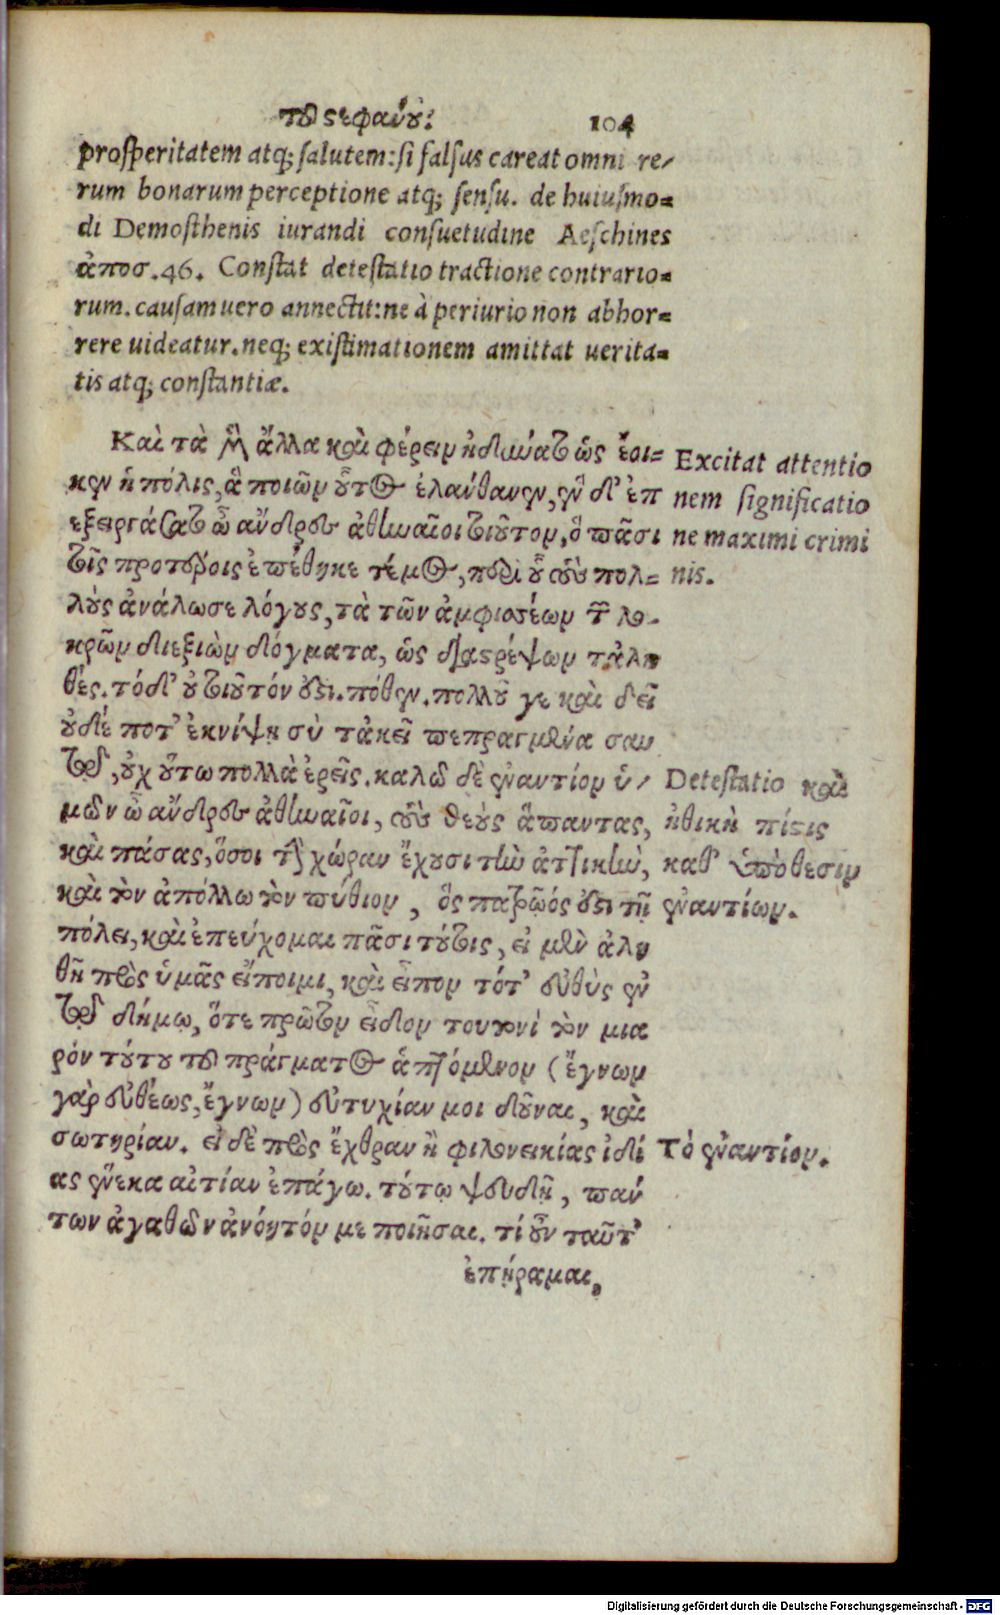 τοῦ στεφάνου. 104
prosperitatem atq; salutem: si falsus careat omni re-
rum bonarum perceptione atq; sensu. de huiusmo-
di Demosthenis iurandi consuetudine Aeschines
ἀποσ. 46. Constat detestatio tractione contrario-
rum. causam uero annectit: ne à periurio non abhor-
rere uideatur. neq; existimationem amittat uerita-
tis atq; constantiæ.
Καὶ τὰ μὲν ἄλλα καὶ φέρειν ἠδύναθ᾽ ὡς ἔοι-
κεν ἡ πόλις, ἃ ποιῶν οὗτος ἐλάνθανεν, ἓν δ᾽ ἐπ
εξειργάσατο ὦ ἄνδρες ἀθηναῖοι τοιοῦτον, ὃ πᾶσι
τοῖς προτέροις ἐπέθηκε τέλος, περὶ οὗ τοὺς πολ-
λοὺς ἀνάλωσε λόγους, τὰ τῶν ἀμφισσέων τῶν λο-
κρῶν διεξιὼν δόγματα, ὡς διαστρέψων τἀλη
θές. τὸ δ᾽ οὐ τοιοῦτόν ἐστι. πόθεν. πολλοῦ γε καὶ δεῖ
οὐδέ ποτ᾽ ἐκνίψῃ σὺ τἀκεῖ πεπραγμένα σαυ
τῷ, οὐχ οὕτω πολλὰ ἐρεῖς. καλῶ δὲ ἐναντίον ὑ-
μῶν ὦ ἄνδρες ἀθηναῖοι, τοὺς θεοὺς ἅπαντας,
καὶ πάσας, ὅσοι τὴν χώραν ἔχουσι τὴν ἀττικὴν,
καὶ τὸν ἀπόλλω τὸν πύθιον, ὃς πατρῷός ἐστι τῇ
πόλει, καὶ ἐπεύχομαι πᾶσι τούτοις, εἰ μὲν ἀλη
θῆ πρὸς ὑμᾶς εἴποιμι, καὶ εἶπον τότ᾽ εὐθὺς ἐν
τῷ δήμῳ, ὅτε πρῶτον εἶδον τουτονὶ τὸν μια
ρὸν τούτου τοῦ πράγματος ἁπτόμενον (ἔγνων
γὰρ εὐθέως, ἔγνων) εὐτυχίαν μοι δοῦναι, καὶ
σωτηρίαν. εἰ δὲ πρὸς ἔχθραν ἢ φιλονεικίας ἰδί
ας ἕνεκα αἰτίαν ἐπάγω. τούτῳ ψευδῆ, πάν
των ἀγαθῶν ἀνόητόν με ποιῆσαι. τί οὖν ταῦτ᾽
ἐπήραμαι,
Excitat attentio
nem significatio
ne maximi crimi
nis.
Detestatio καὶ
ἠθικὴ πίστις
καθ᾽ ὑπόθεσιν
ἐναντίων.
Τὸ ἐναντίον.
Digitalisierung gefördert durch die Deutsche Forschungsgemeinschaft - DFG